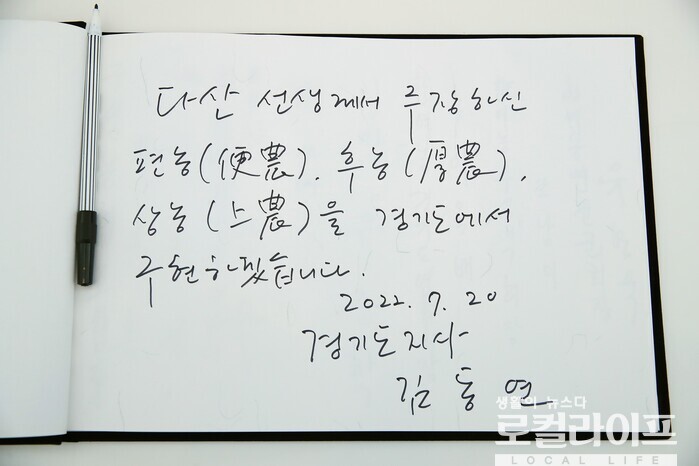 다산 선생께서 주장하신
편농(便農), 후농(厚農),
상농(上農)을 경기도에서
구현하겠습니다.
2022. 7. 20
경기도지사
김동연
생활의 뉴스다
로컬라이프
LOCAL LIFE